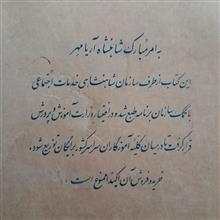 به امر مبارک شاهنشاه آریامهر
این کتاب از طرف سازمان شاهنشاهی خدمات اجتماعی
با کمک سازمان برنامه طبع شد و در اختیار وزارت آموزش و پرورش
قرار گرفت تا در میان کلیه آموزگاران سراسر کشور برایگان توزیع شود،
خرید و فروش آن اکیداً ممنوع است.